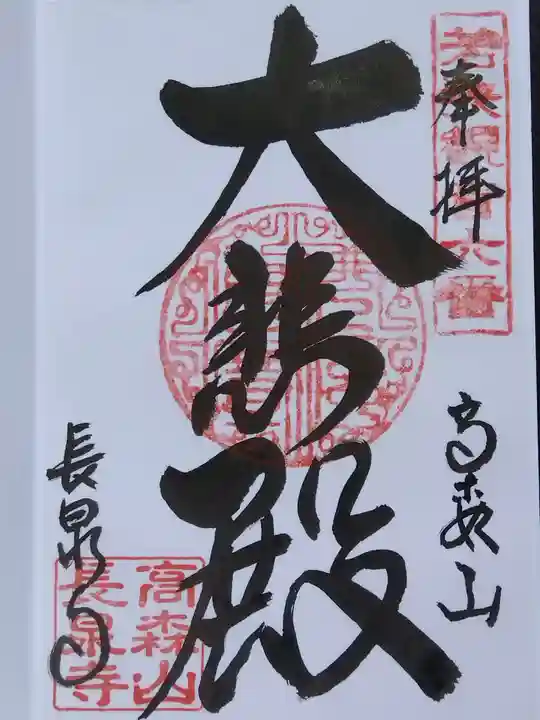 奉拝
大悲殿
高森山
長泉寺
高森山
長泉寺